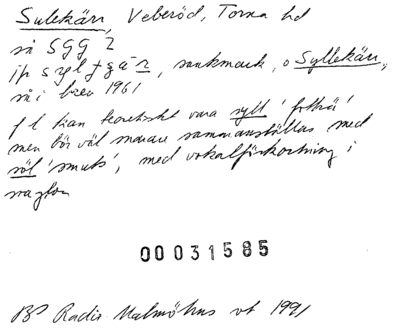 Sulekärr, Veberöd, Torna hd
så SGG 2
, sankmark, o Syllekärr,
så i brev 1961
f l kan teoretiskt vara syll 'fotträ'
men bör väl snarare sammanställas med
söl 'smuts', med vokalförkortning i
00031585
BP Radio Malmöhus vt 1991